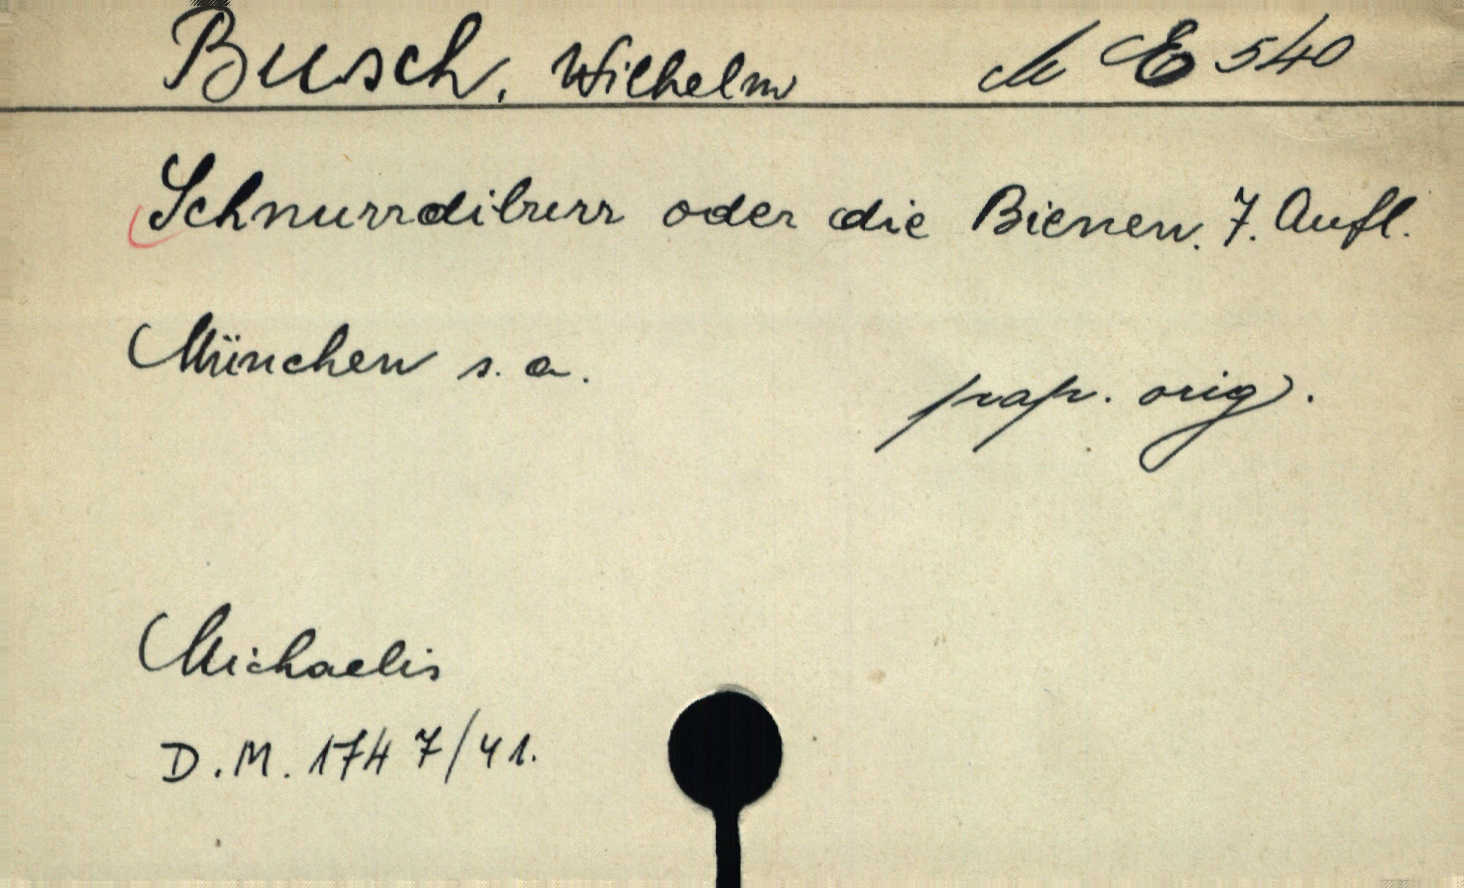 Busch, Wilhelm E 540
Schnurrdiburr oder die Bienen. 7. Aufl.
München s. a.
pap. orig.
Michaelis
D.M. 1747/41.